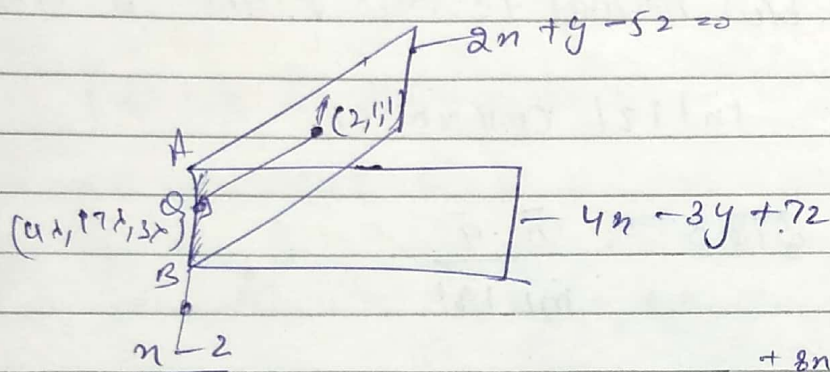 2x + y - 5z = 0
(2,1,1)
A
Q
(4λ, 17λ, 5λ)
4x - 3y + 7z
B
x - 2
+ 8x